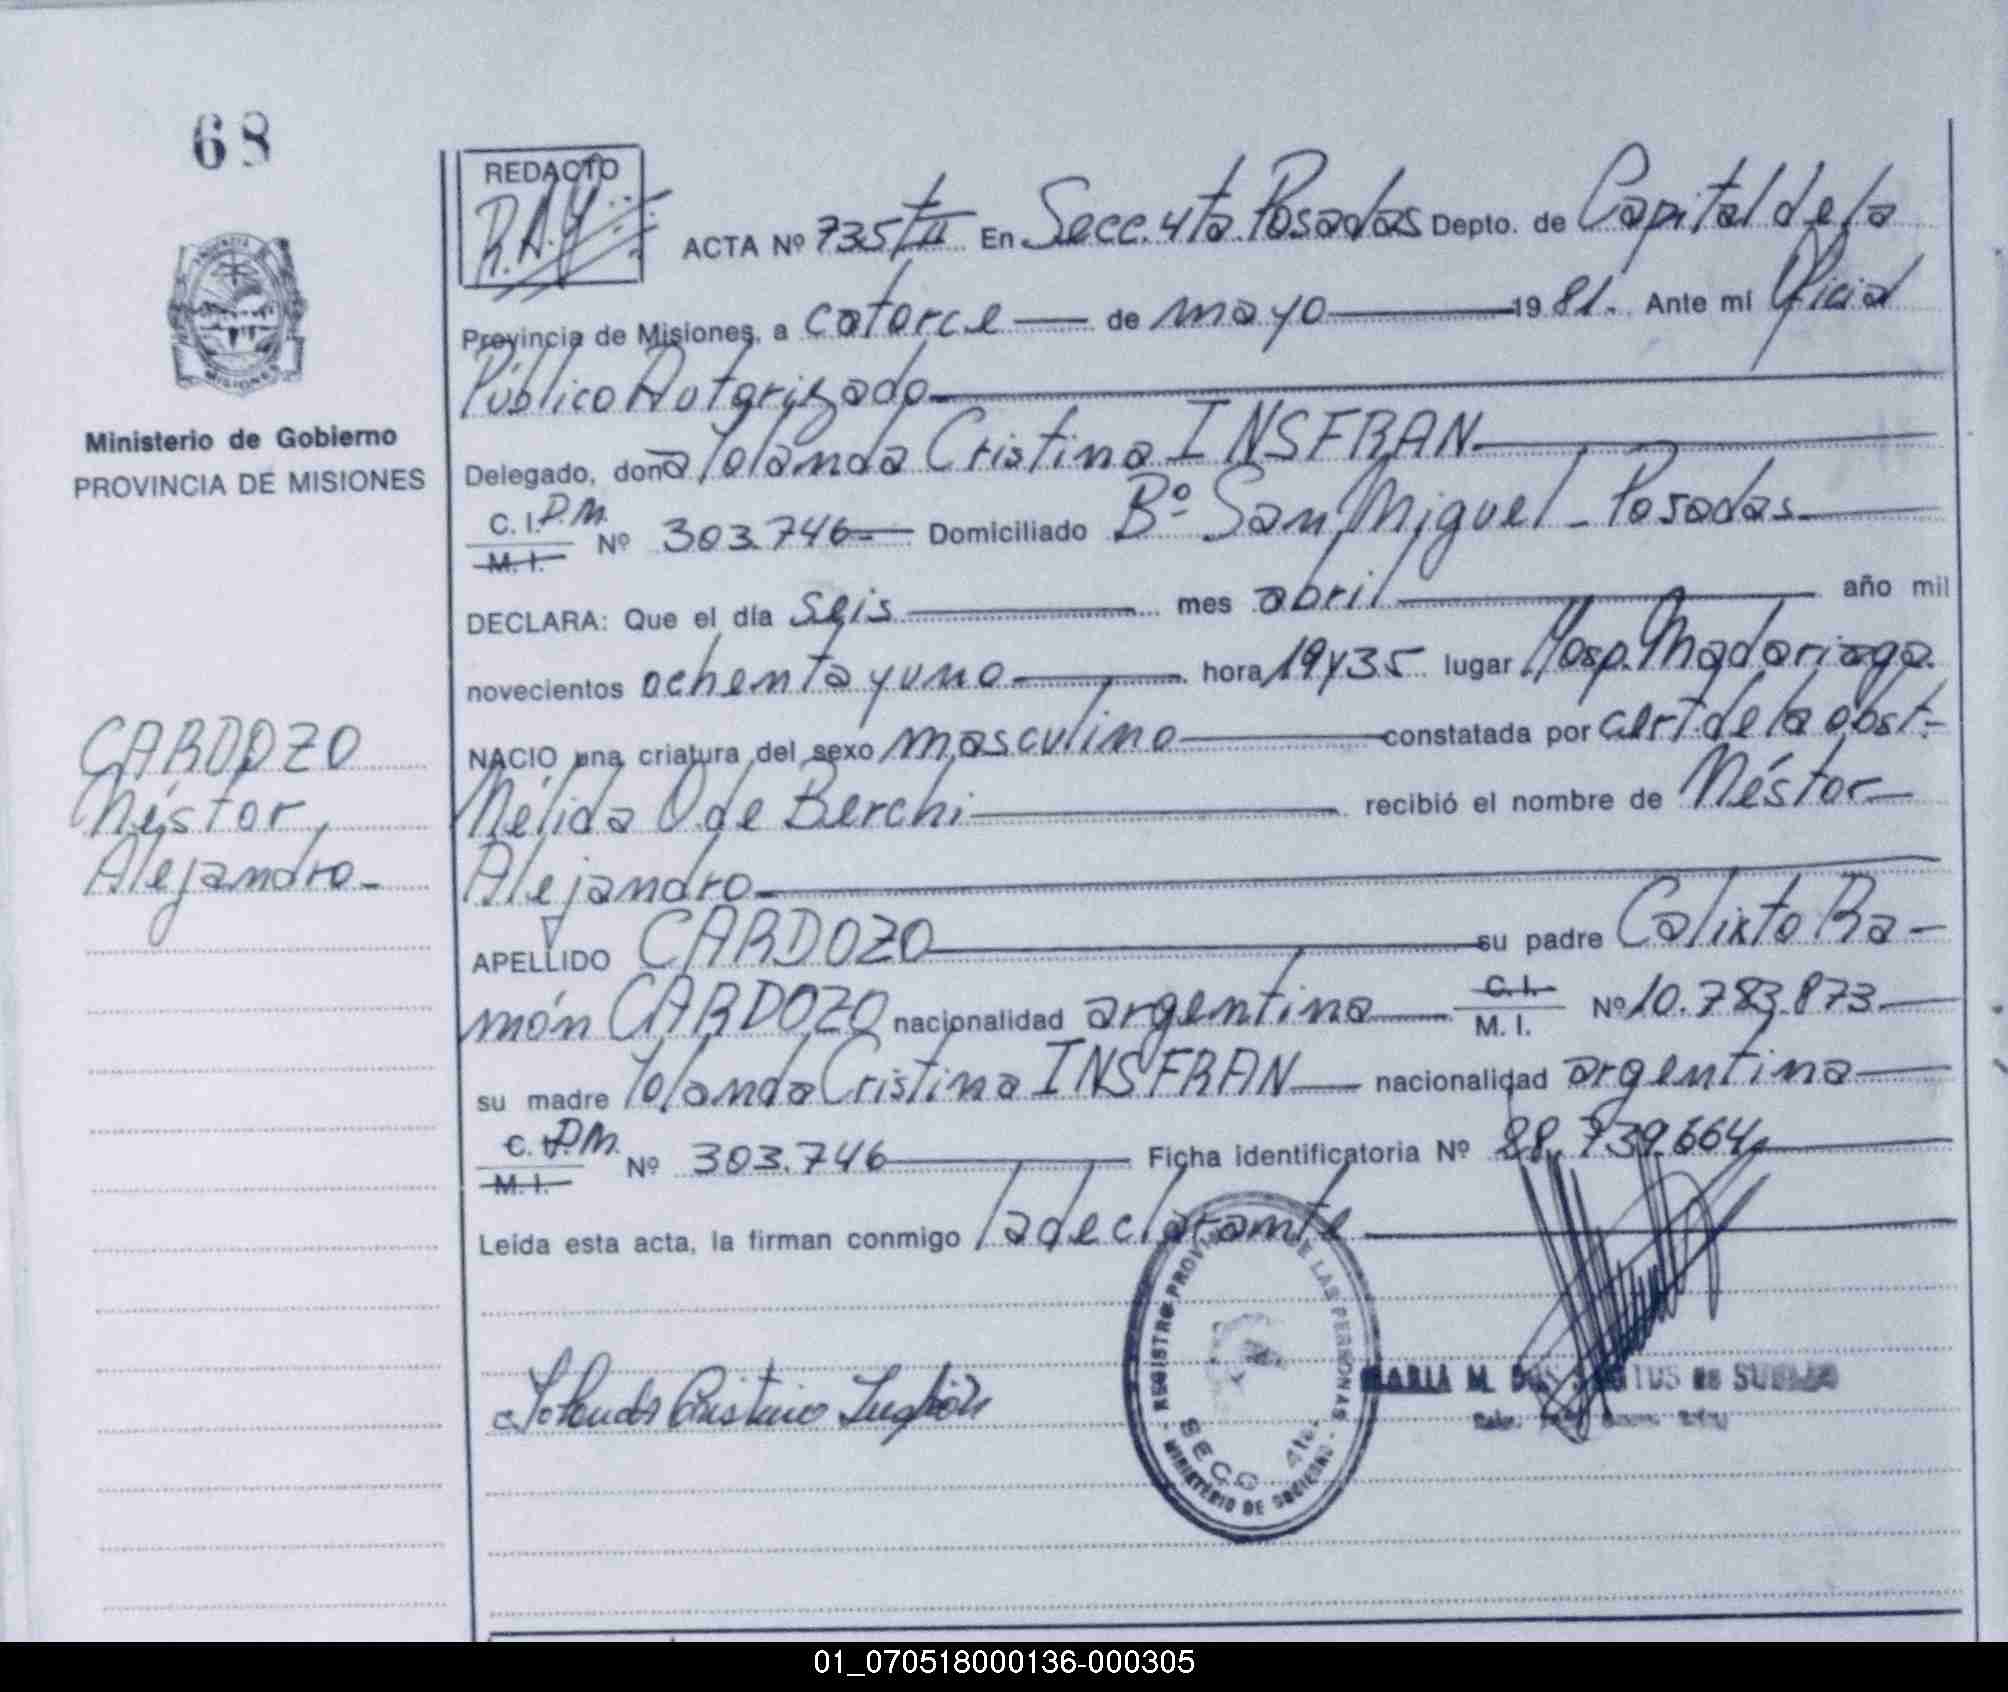 68
REDACTO
ACTA Nº 735 TII En Secc. 4ta. Posadas Depto. de Capital de la
Provincia de Misiones, a catorce de mayo 1981. Ante mí Oficial
Público Autorizado
Delegado, doña Iolanda Cristina INSFRAN
C. I. D.M. Nº 303.746 Domiciliado Bº San Miguel - Posadas
M. I.
DECLARA: Que el día seis mes abril año mil
novecientos ochenta y uno hora 19 y 35 lugar Hosp. Madariaga.
NACIO una criatura del sexo masculino constatada por cert. de la obst.
Nélida O. de Berchi recibió el nombre de Néstor
Alejandro
APELLIDO CARDOZO su padre Calixto Ra-
món CARDOZO nacionalidad argentina C. I. M. I. Nº 10.783.873.
su madre Iolanda Cristina INSFRAN nacionalidad argentina
C. I. D.M. Nº 303.746 Ficha identificatoria Nº 88.739.664
M. I.
Leída esta acta, la firman conmigo la declarante
PROVINCIA
MISIONES
Ministerio de Gobierno
PROVINCIA DE MISIONES
CARDOZO
Néstor
Alejandro-
Iolanda Cristina
REGISTRO PROVINCIAL DE LAS PERSONAS
SECC 4ta.
MINISTERIO DE GOBIERNO
MARIA M.
01_070518000136-000305